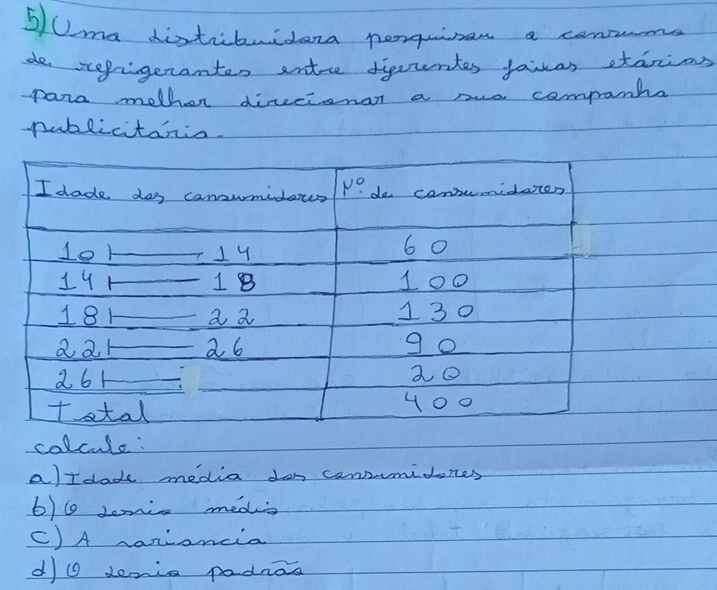 5) Uma distribuidora pesquisou o consumo
de refrigerantes entre diferentes faixas etárias
para melhor direcionar a sua campanha
publicitária.
Idade dos consumidores Nº de consumidores
10 ⊢ 14 60
14 ⊢ 18 100
18 ⊢ 22 130
22 ⊢ 26 90
26 ⊢ 20
Total 400
calcule:
a) Idade média dos consumidores
b) O desvio médio
c) A variancia
d) O desvio padrão